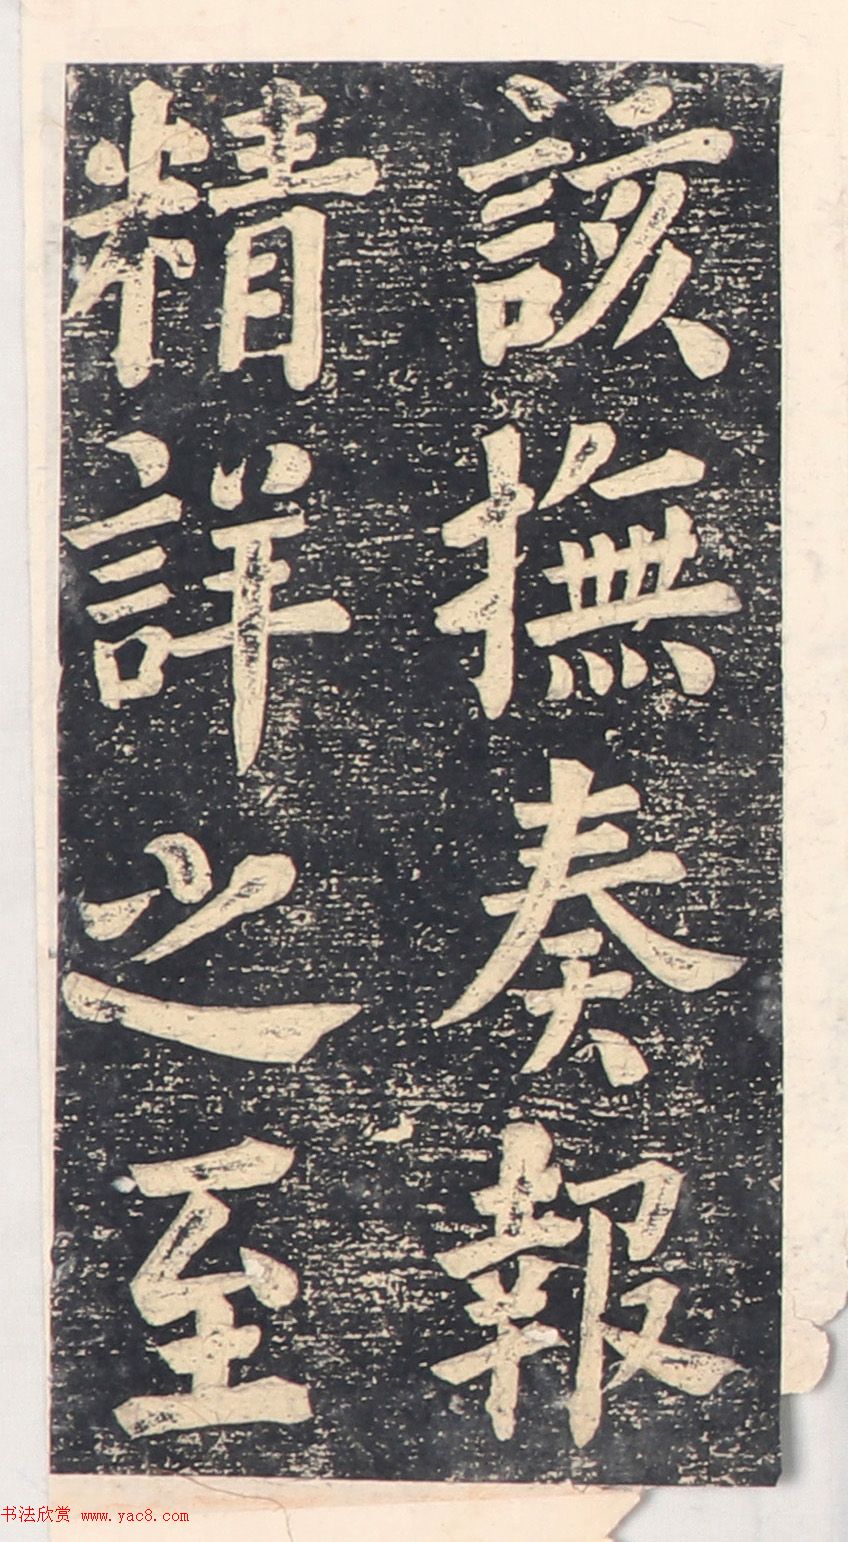 該撫奏報
精詳之至
书法欣赏 www.yac8.com